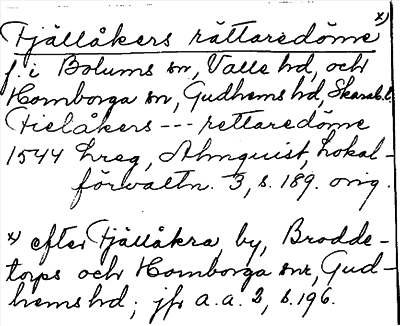 Fjällåkers rättaredöme x)
f. i Bolums sn, Valle hd, och
Hornborga sn, Gudhems hd, Skarab.l.
Fielåkers --- rettaredöme
1544 hreg, Almquist, Lokal-
förvaltn. 3, s. 189. orig.
x) efter Fjällåkra by, Brodde-
torps och Hornborga snr, Gud-
hems hd; jfr a.a. 3, s. 196.